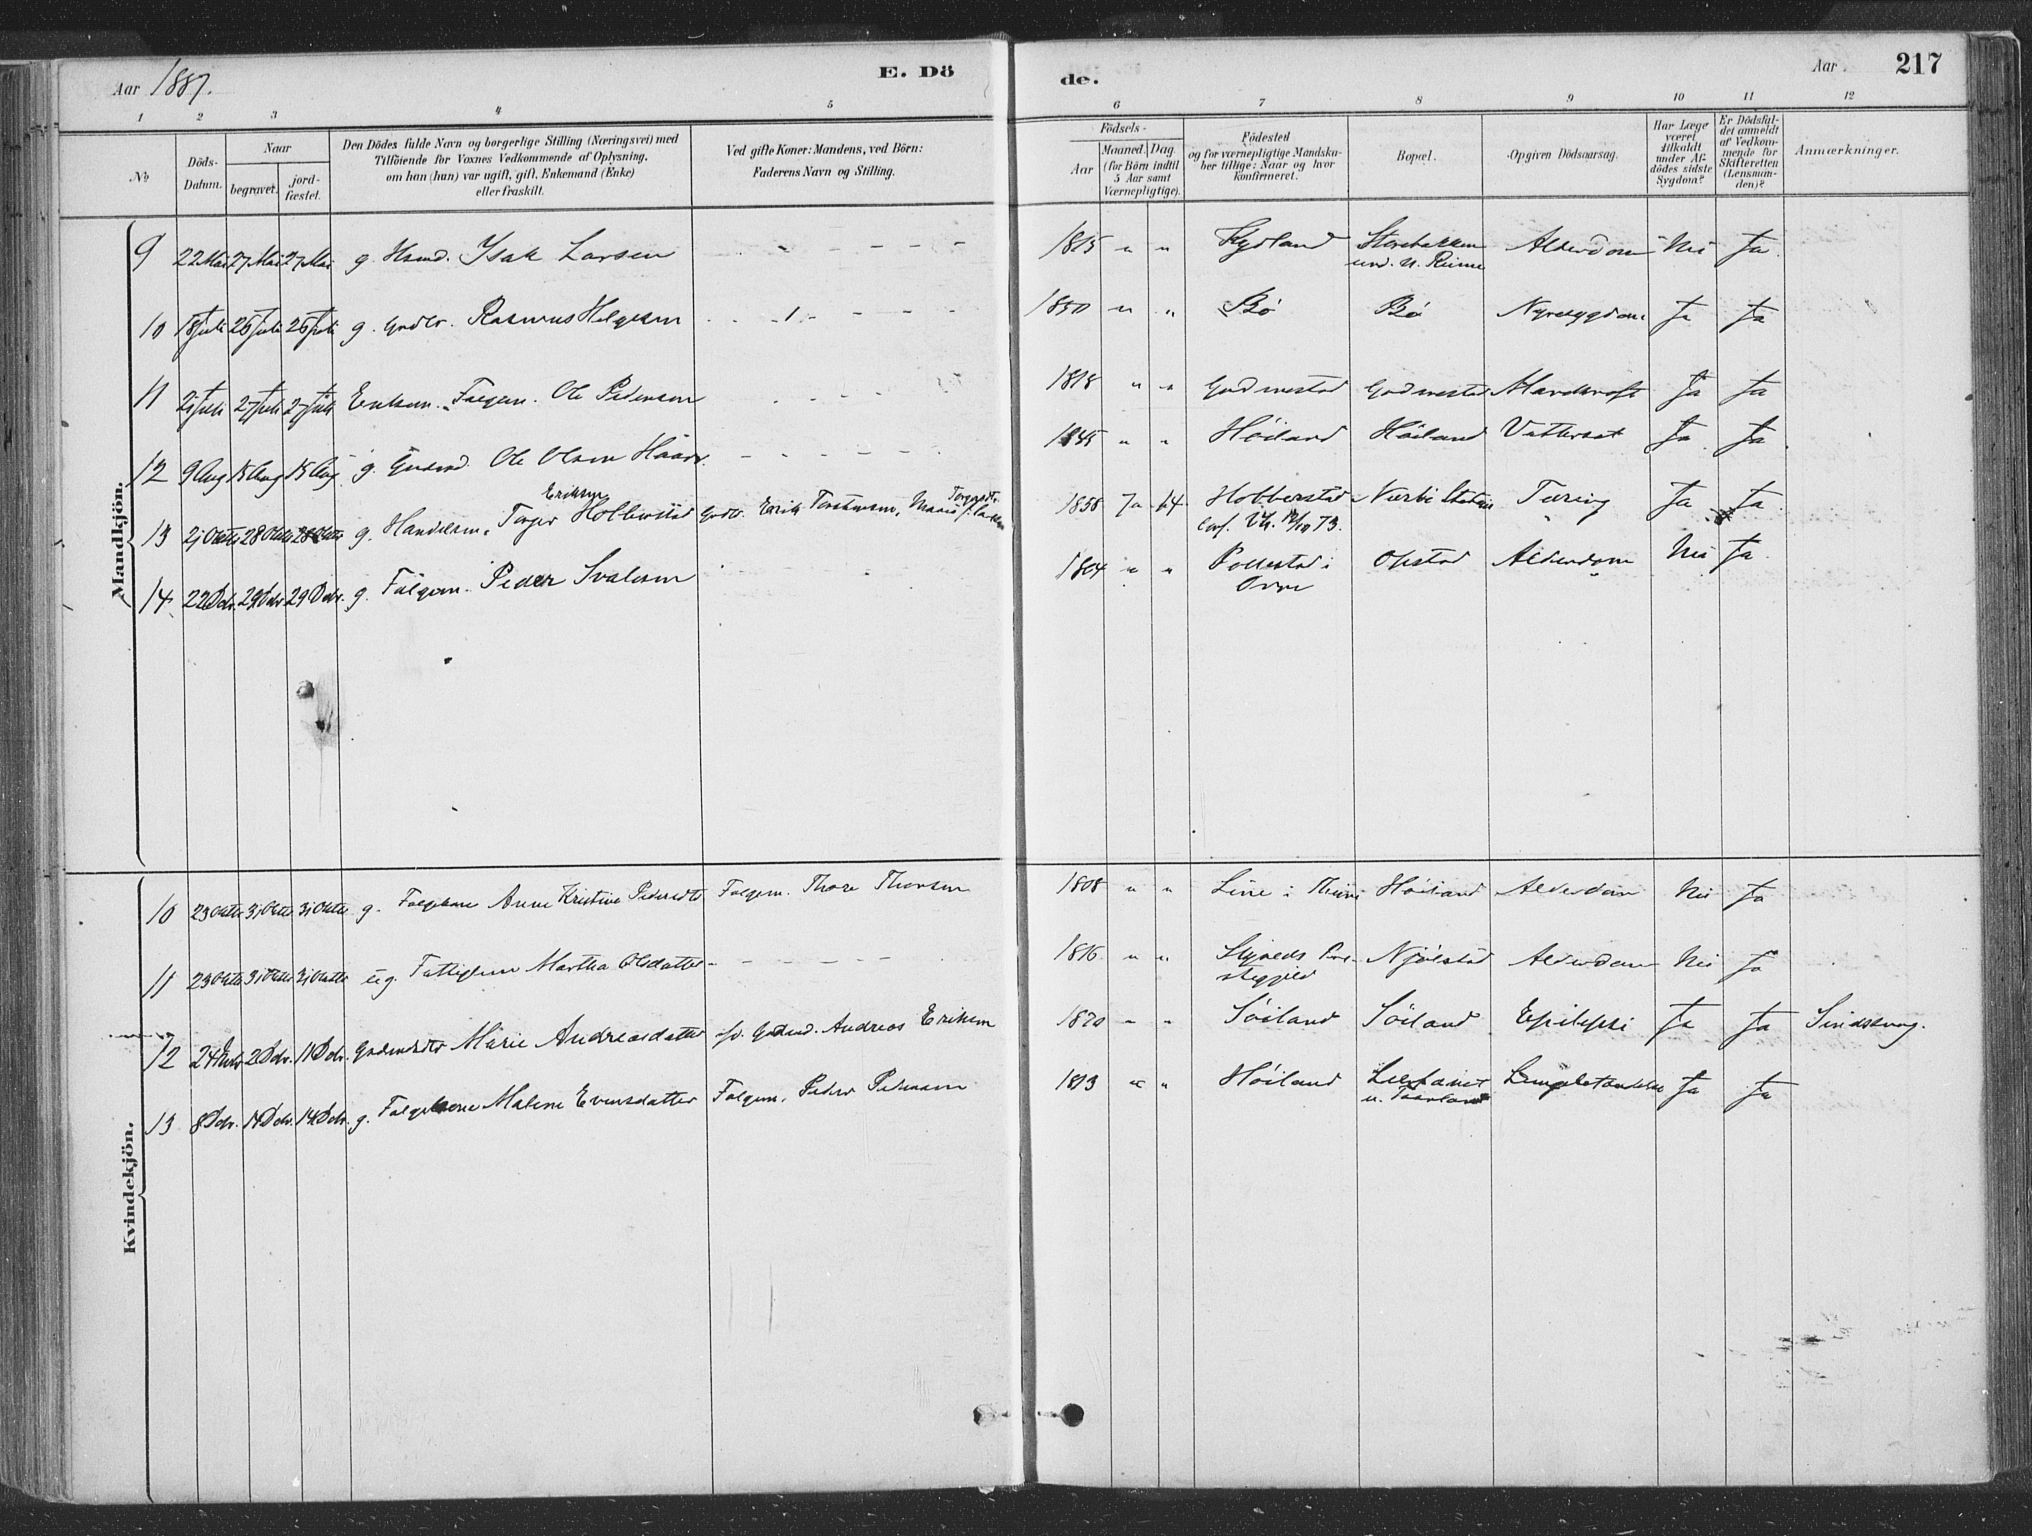 Aar 1887.
E. Dö
de.
Aar
217
1 2 3 4 5 6 7 8 9 10 11 12
No
Döds-
Datum.
Naar
begravet.
jord-
fæstet.
Den Dödes fulde Navn og borgerlige Stilling (Næringsvei) med
Tilföiende for Voxnes Vedkommende af Oplysning,
om han (hun) var ugift, gift, Enkemand (Enke)
eller fraskilt.
Ved gifte Koner: Mandens, ved Börn:
Faderens Navn og Stilling.
Födsels-
Aar
Maaned. Dag.
(for Börn indtil
5 Aar samt
Værnepligtige).
Födested
og for værnepligtige Mandska-
ber tillige: Naar og hvor
konfirmeret.
Bopæl.
Opgiven Dödsaarsag.
Har Læge
været
tilkaldt
under Af-
dödes sidste
Sygdom?
Er Dödsfal-
det anmeldt
af Vedkom-
mende for
Skifteretten
(Lensman-
den)?
Anmærkninger.
Mandkjön.
9 22 Mai 27 Mai 27 Mai g. Huusd. Isak Larsen 1815 " " Kydland Storebakken Alderdom Nei Ja
und. N. Reime
10 18 Juli 26 Juli 26 Juli g. Gndbr. Rasmus Helgesen 1850 " " Bö Bö Nyresygdom Ja Ja
11 21 Juli 27 Juli 27 Juli Enkem. Folgem. Ole Pedersen 1818 " " Godmestad Godmestad Ja Ja
12 9 Aug 15 Aug 15 Aug g. Ole Olsen Haar 1845 " " Höiland Höiland Vattersot Ja Ja
Eriksen
13 21 Oktb 28 Oktb 28 Oktb g. Handelsm. Torger Hobberstad Gndbr. Erik Torstensen, 1858 Ja 14 Hobberstad Nærbö Station Tæring Ja Ja
Conf. 12/10 73.
14 22 Dcbr. 29 Dcbr. 29 Dcbr. g. Folgem. Peder Svalesen 1804 " " Pollestad i Opstad Alderdom Nei Ja
Orre
Kvindekjön.
10 23 Oktb 31 Oktb 31 Oktb g. Folgekone Anne Kristine Pedersdtr Folgem. Thore Thorsen 1808 " " Line i Thime Höiland Alderdom Nei Ja
11 23 Oktb 31 Oktb 31 Oktb ug. Fattiglem Martha Olsdatter 1816 " " Klepps Præ- Njølstad Alderdom Nei Ja
stegjeld
12 24 Novbr 2 Dcbr. 11 Dcbr. Gndmdsdtr Marie Andreasdatter f. Gndmd. Andreas Eriksen 1870 " " Söiland Söiland Epilepsi Ja Ja Sindssvag.
13 8 Dcbr. 14 Dcbr. 14 Dcbr. g. Folgekone Malene Evensdatter Folgem. Peder Pedersen 1813 " " Höiland Lungebetændelse Ja Ja